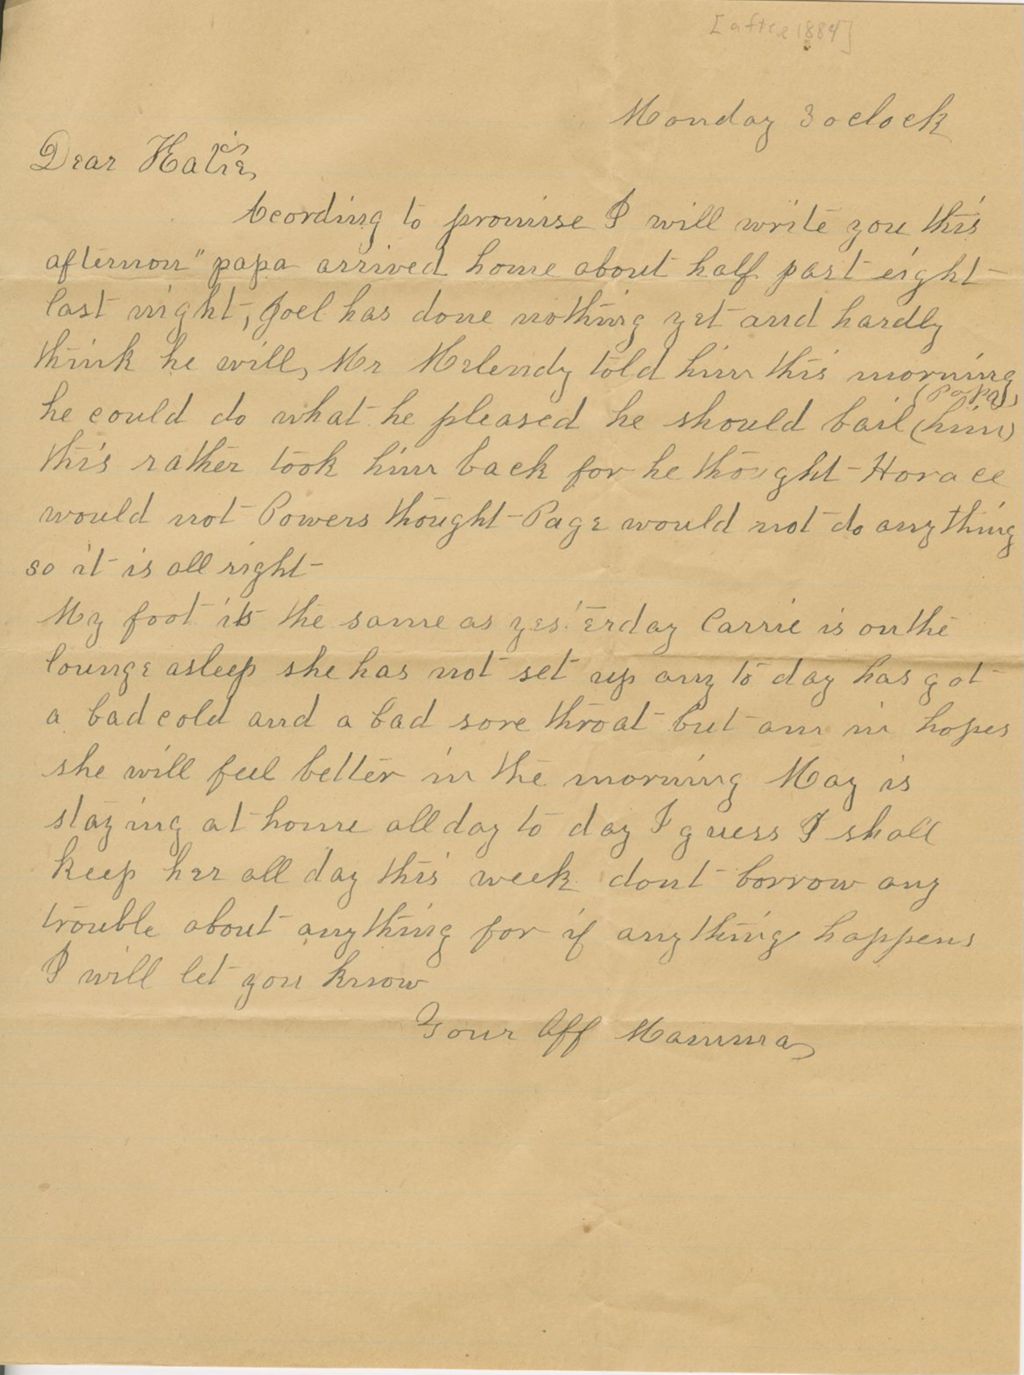 [after 1884]
Monday 3 oclock
Dear Katie,
Acording to promise I will write you this
afternoon" papa arrived home about half past eight
last night, Joel has done nothing yet and hardly
think he will, Mr Melendy told him this morning
(Papa)
he could do what he pleased he should bail (him)
this rather took him back for he thought Horace
would not Powers thought Page would not do anything
so it is all right
My foot is the same as yesterday Carrie is on the
lounge asleep she has not set up any to day has got
a bad cold and a bad sore throat but am in hopes
she will feel better in the morning May is
staying at home all day to day I guess I shall
keep her all day this week dont borrow any
trouble about anything for if anything happens
I will let you know
Your Aff Mamma